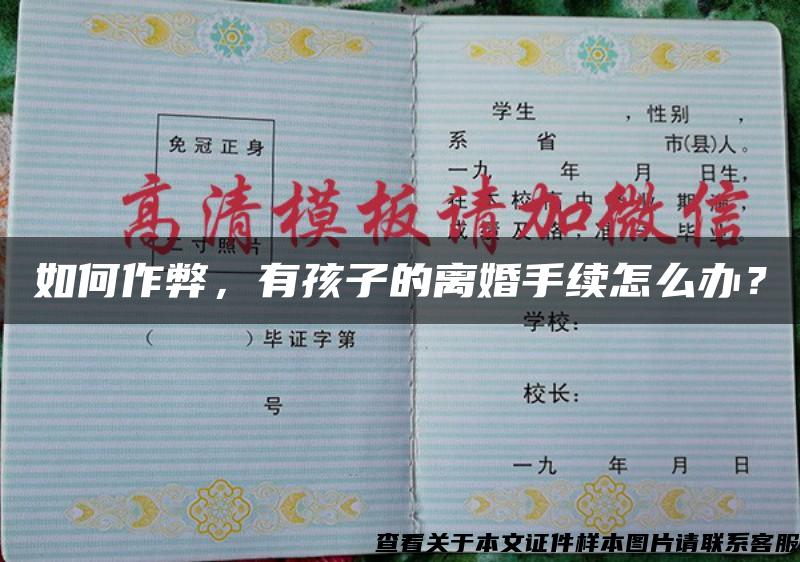 学生 ，性别 ，
免冠正身
系 省 市(县)人。
一九 年 月 日生，
高清模板请加微信
成绩及格，准予毕业。
二寸照片
如何作弊，有孩子的离婚手续怎么办？
学校：
（ ）毕证字第
号
校长：
一九 年 月 日
查看关于本文证件样本图片请联系客服